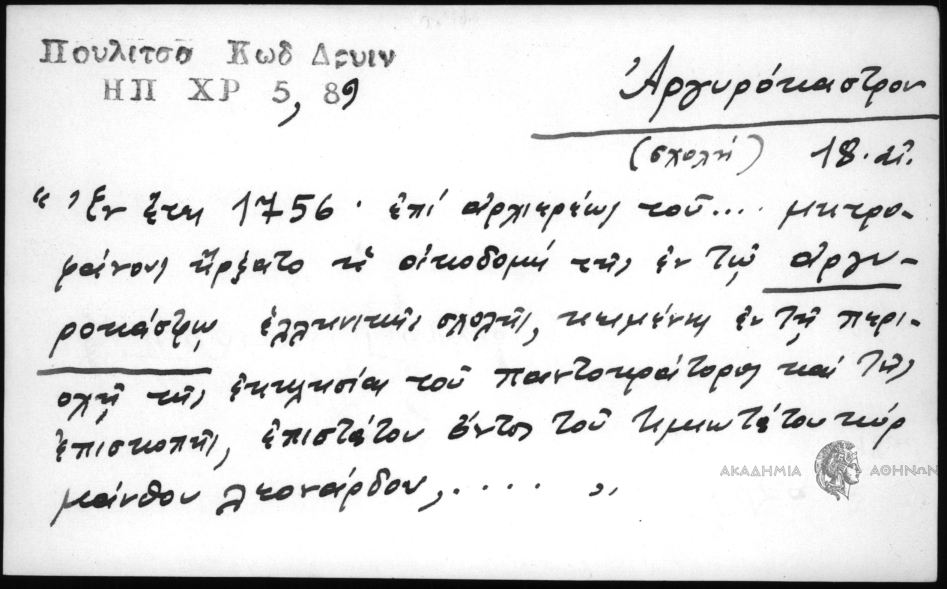 Πουλιτσα Κωδ Δρυιν
ΗΠ ΧΡ 5, 89
Ἀργυρόκαστρον
(σχολή) 18. αἰ.
"Ἐν ἔτει 1756 · ἐπί ἀρχιερέως τοῦ.... μητρο-
φάνους ἤρξατο ἡ οἰκοδομή τῆς ἐν τῷ ἀργυ-
ροκάστρῳ ἑλληνικῆς σχολῆς, κειμένης ἐν τῇ περι-
οχῇ τῆς ἐκκλησίας τοῦ παντοκράτορος καί τῆς
ἐπισκοπῆς, ἐπιστάτου ὄντος τοῦ τιμιωτάτου κύρ
μάνθου λεονάρδου, ..... "
ΑΚΑΔΗΜΙΑ ΑΘΗΝΩΝ